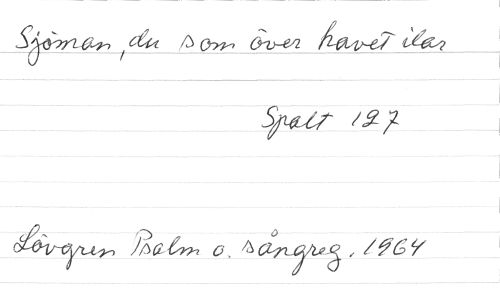 Sjöman, du som över havet ilar
Spalt 127
Lövgren Psalm o. sångreg. 1964